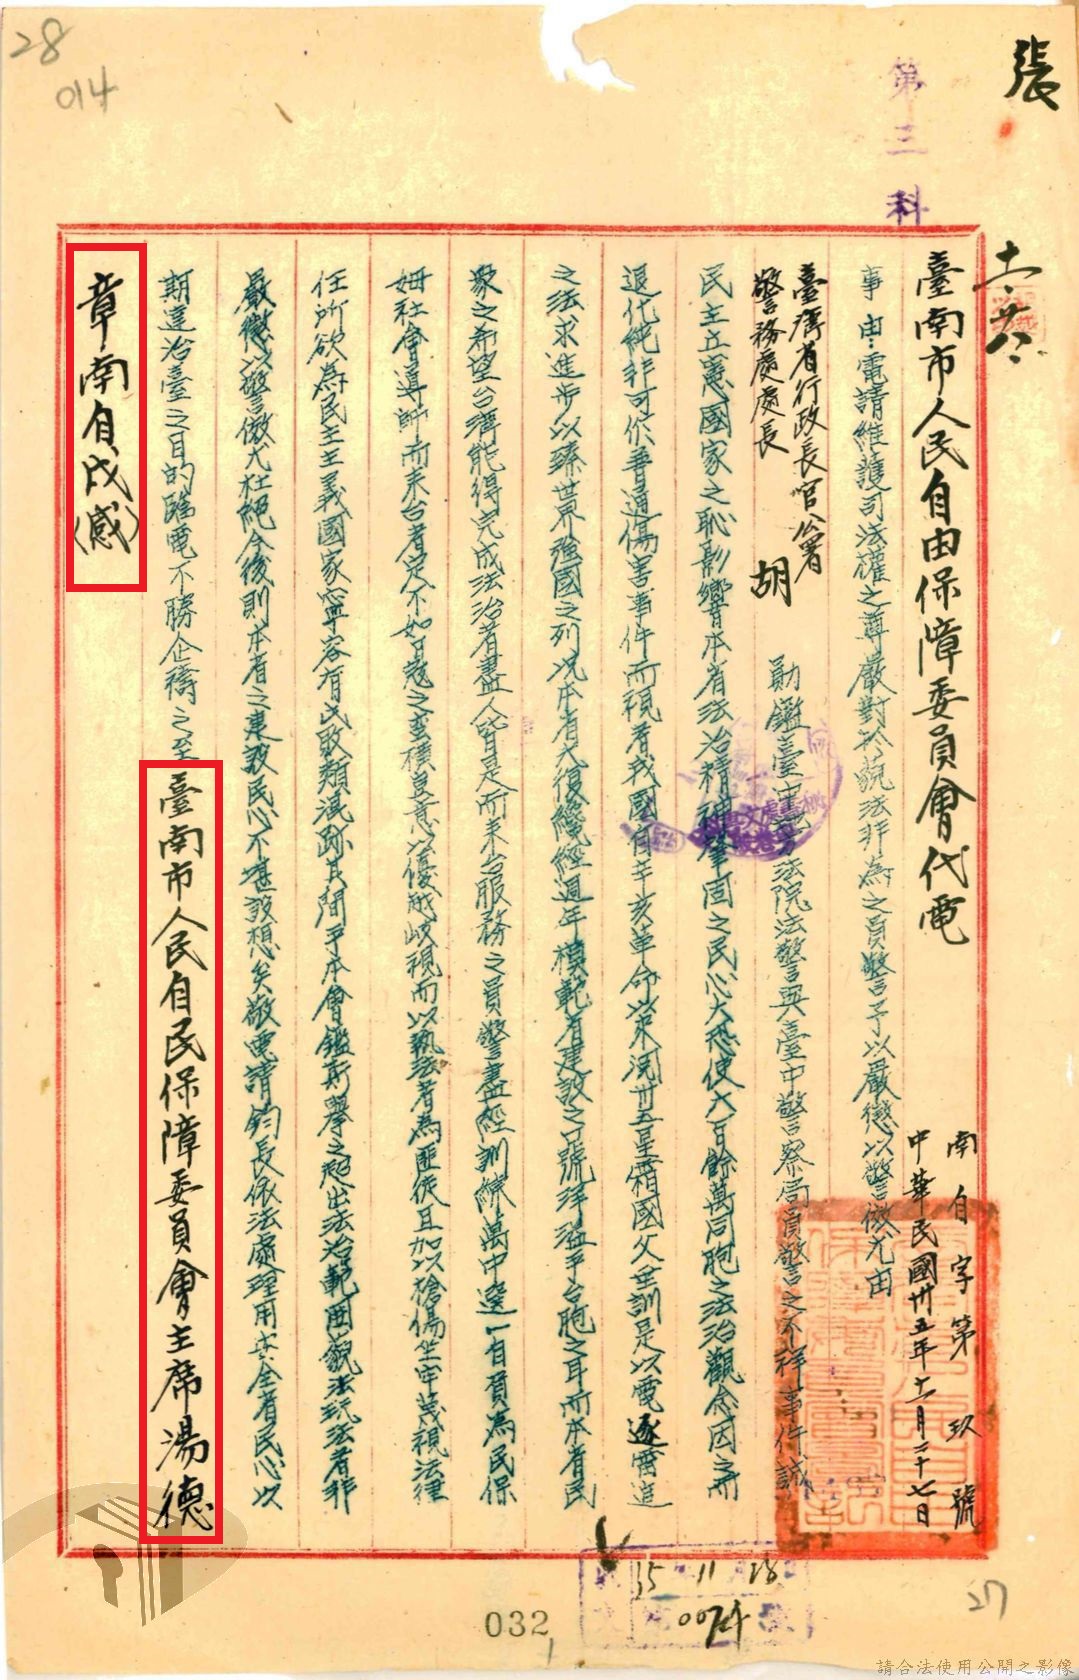 28
014
第三科
張
十一、廿八、
臺南市人民自由保障委員會代電
南自字第玖號
中華民國卅五年十一月二十七日
事由:電請維護司法權之尊嚴對於藐法非為之員警予以嚴懲以警傚尤由
臺灣省行政長官公署
警務處處長 胡
勛鑑臺中地方法院法警與臺中警察局員警之不祥事件誠
民主立憲國家之恥影響本省法治精神肇固之民心大恐使六百餘萬同胞之法治觀念因之而
退代純非可供普通傷害事件而視者我國自辛亥革命以來況卅五星霜國父坐訓是以電逐電進
之法求進步以臻世界強國之列況本省光復纔經週年模範省建設之口號洋溢乎台胞之耳而本省民
眾之希望台灣能得完成法治者盡人皆是而來台服務之員警盡經訓練萬中選一有質為民保
姆社會導師而來台者定不如日寇之蛮橫良意以優越岐視而以執法者為匪徒且加以槍傷坐牢蔑視法律
任所欲為民主主義國家寧容有此敗類混跡其間乎本會鑑斯舉之超出法治範圍藐法玩法者非
嚴懲以警傚尤杜絕今後則本省之建設民心不堪設想矣敬電請鈞長依法處理用安全省民心以
期達治臺之目的臨電不勝企禱之至臺南市人民自民保障委員會主席湯德
章南自戌(感)
35 11 28
0074
032
27
請合法使用公開之影像